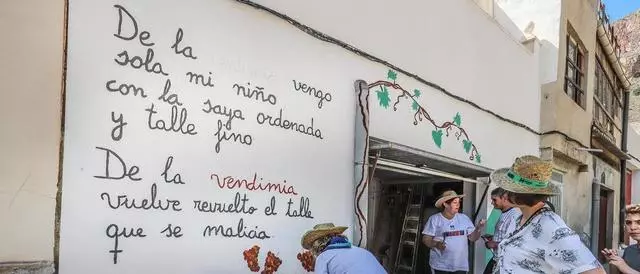 De la
sola mi niño vengo
con la saya ordenada
y talle fino
De la vendimia
vuelve revuelto el talle
que se malicia